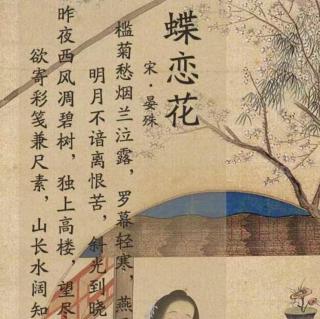 蝶恋花
宋·晏殊
槛菊愁烟兰泣露，罗幕轻寒 燕
明月不谙离恨苦，斜光到晓
昨夜西风凋碧树，独上高楼，望尽
欲寄彩笺兼尺素，山长水阔知